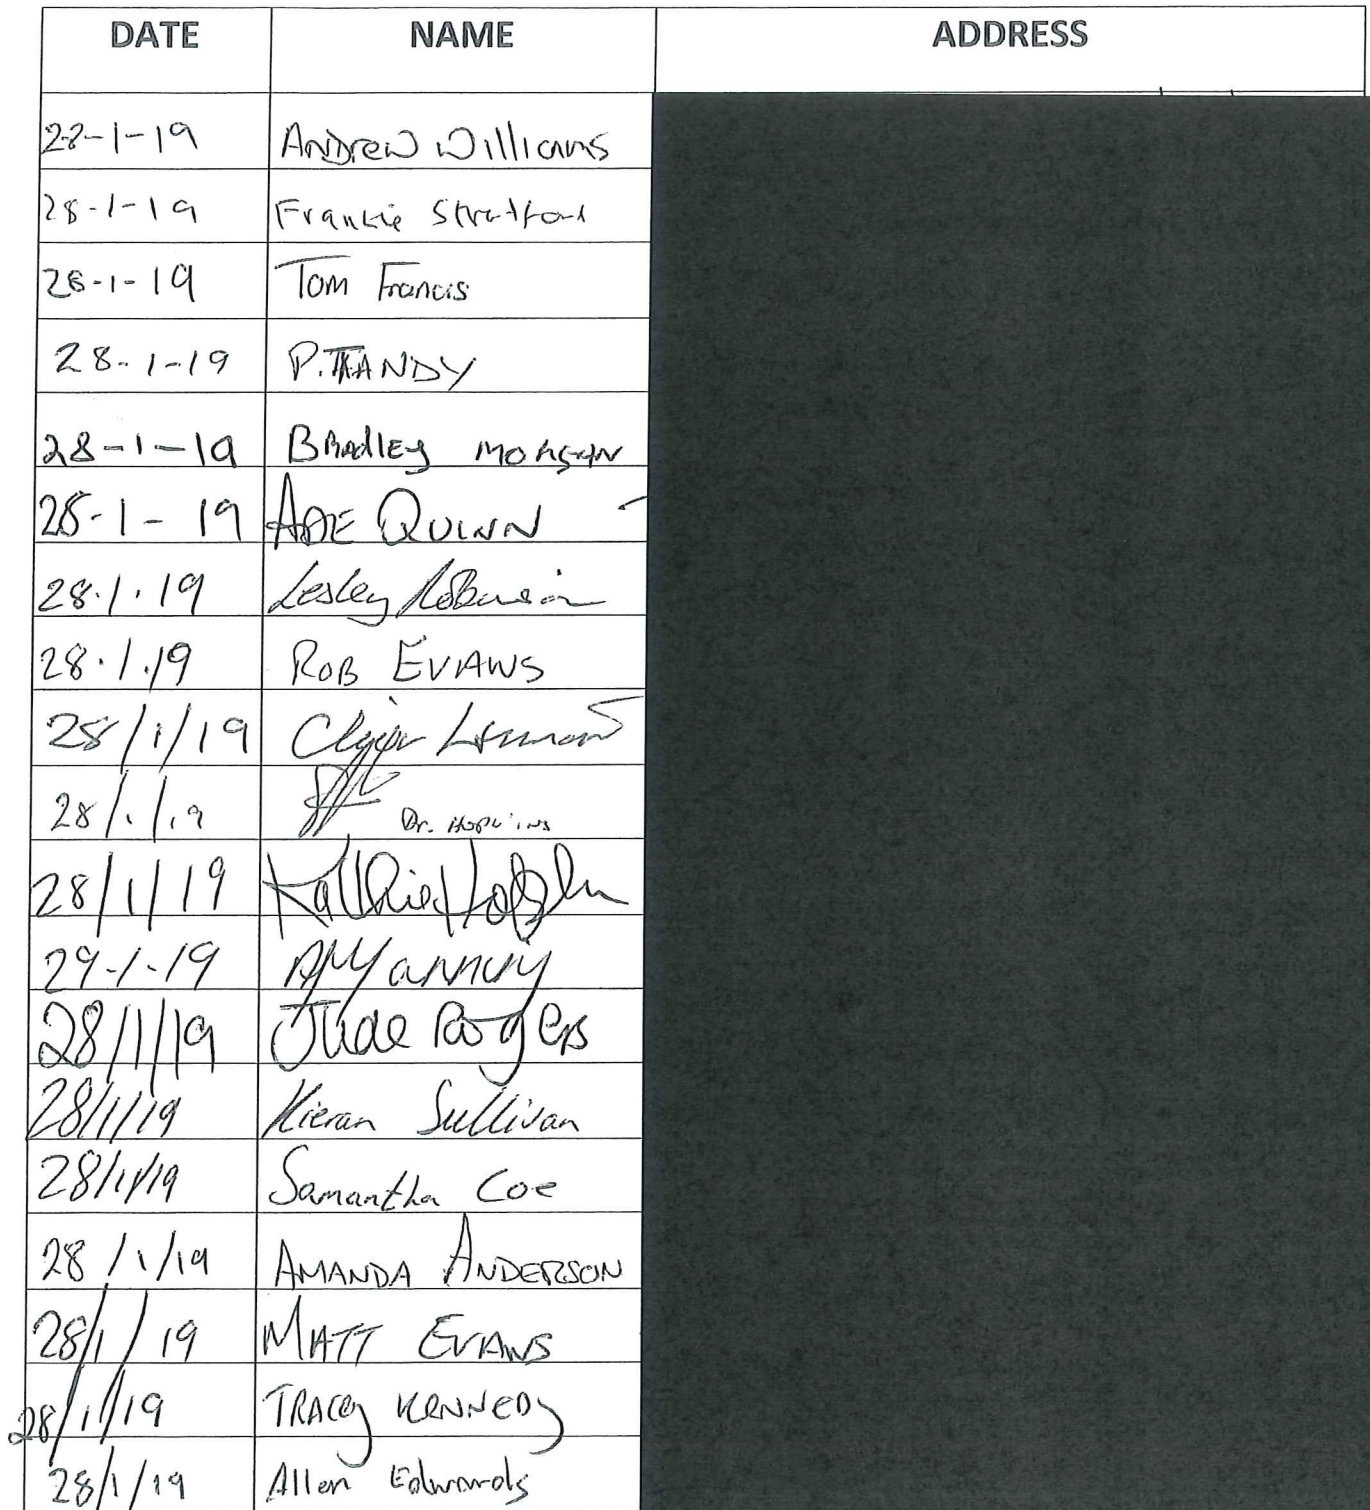 DATE NAME ADDRESS
28-1-19 Andrew Williams
28-1-19 Frankie Stratford
28-1-19 Tom Francis
28-1-19 P. TANDY
28-1-19 Bradley Morgan
28-1-19 ADE QUINN
28.1.19 Lesley Robinson
28.1.19 ROB EVANS
28/1/19
28/1/19 Dr. HOPKINS
28/1/19
29-1-19
28/1/19 Jude Rogers
28/1/19 Kieran Sullivan
28/1/19 Samantha Coe
28/1/19 AMANDA ANDERSON
28/1/19 MATT EVANS
28/1/19 TRACEY KENNEDY
28/1/19 Allen Edwards